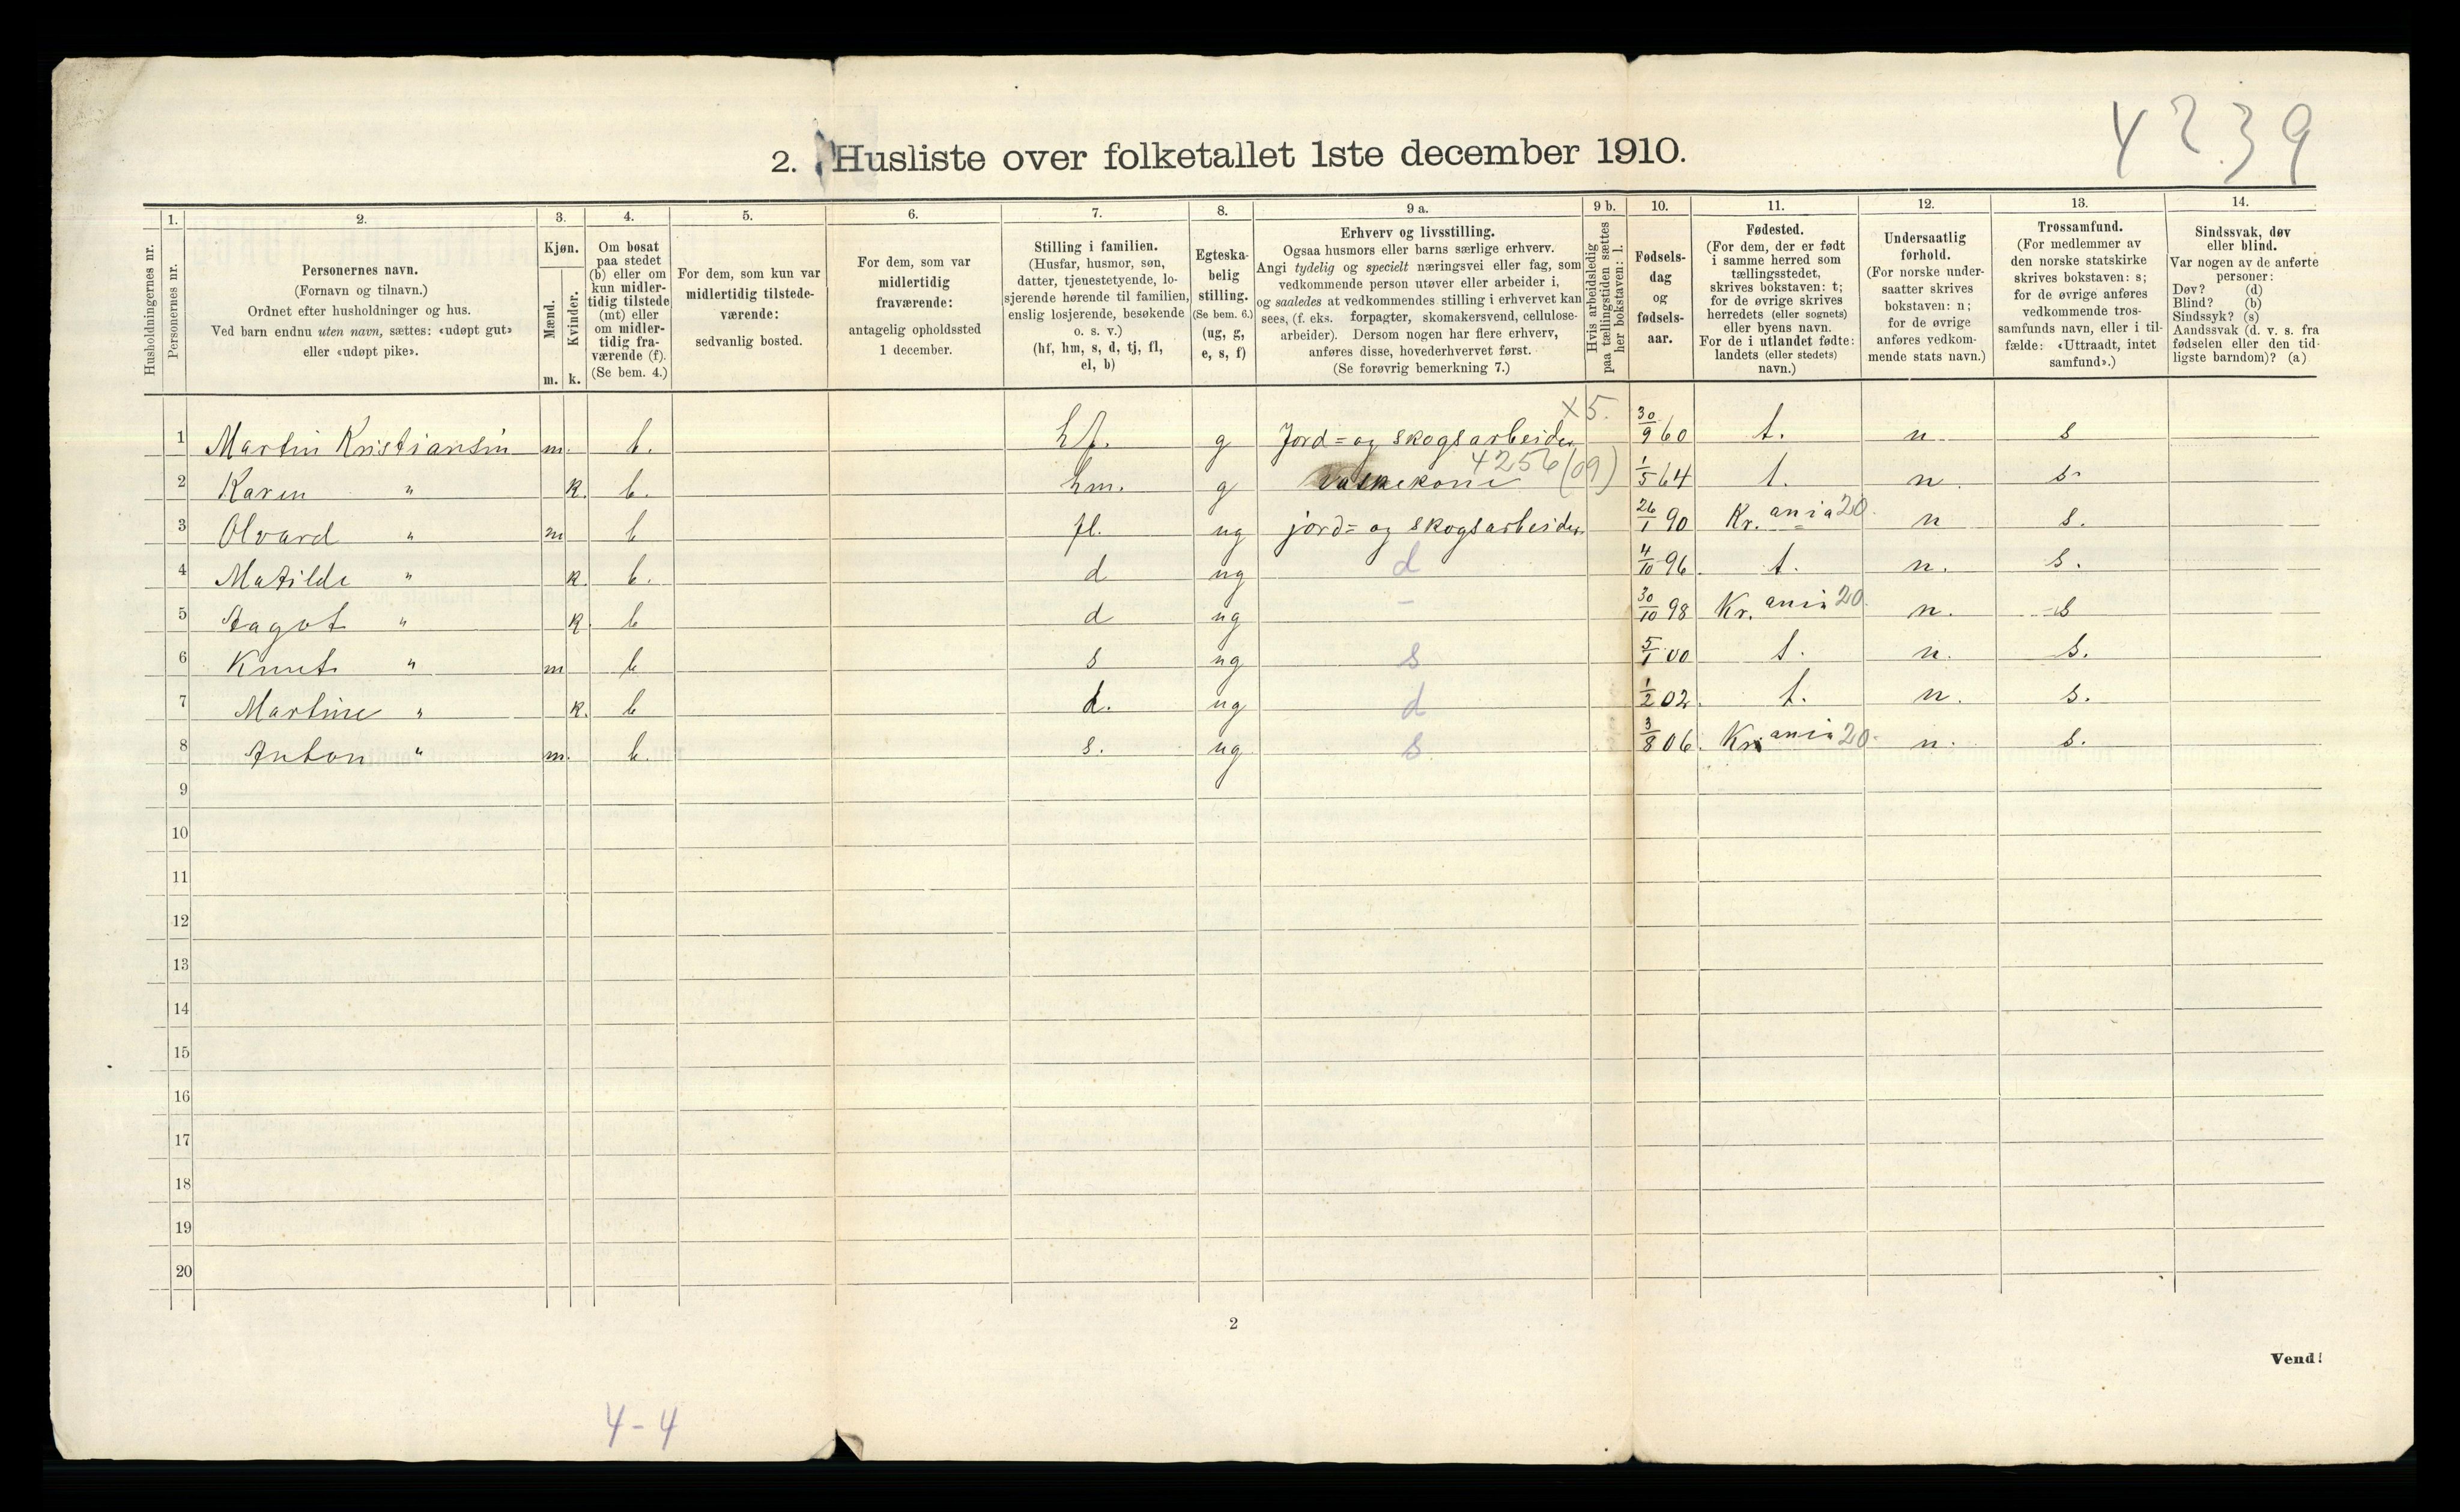 4239
2. Husliste over folketallet 1ste december 1910.
Husholdningernes nr.
1. Personernes nr.
2. Personernes navn.
(Fornavn og tilnavn.)
Ordnet efter husholdninger og hus.
Ved barn endnu uten navn, sættes: «udøpt gut»
eller «udøpt pike».
3. Kjøn.
Mænd. Kvinder.
m. k.
4. Om bosat
paa stedet
(b) eller om
kun midler-
tidig tilstede
(mt) eller
om midler-
tidig fra-
værende (f).
(Se bem. 4.)
5. For dem, som kun var
midlertidig tilstede-
værende:
sedvanlig bosted.
6. For dem, som var
midlertidig
fraværende:
antagelig opholdssted
1 december.
7. Stilling i familien.
(Husfar, husmor, søn,
datter, tjenestetyende, lo-
sjerende hørende til familien,
enslig losjerende, besøkende
o. s. v.)
(hf, hm, s, d, tj, fl,
el, b)
8. Egteska-
belig
stilling.
(Se bem. 6.)
(ug, g,
e, s, f)
9 a. Erhverv og livsstilling.
Ogsaa husmors eller barns særlige erhverv.
Angi tydelig og specielt næringsvei eller fag, som
vedkommende person utøver eller arbeider i,
og saaledes at vedkommendes stilling i erhvervet kan
sees, (f. eks. forpagter, skomakersvend, cellulose-
arbeider). Dersom nogen har flere erhverv,
anføres disse, hovederhvervet først.
(Se forøvrig bemerkning 7.)
9 b. Hvis arbeidsledig
paa tællingstiden sættes
her bokstaven: l.
10. Fødsels-
dag
og
fødsels-
aar.
11. Fødested.
(For dem, der er født
i samme herred som
tællingsstedet,
skrives bokstaven: t;
for de øvrige skrives
herredets (eller sognets)
eller byens navn.
For de i utlandet fødte:
landets (eller stedets)
navn.)
12. Undersaatlig
forhold.
(For norske under-
saatter skrives
bokstaven: n;
for de øvrige
anføres vedkom-
mende stats navn.)
13. Trossamfund.
(For medlemmer av
den norske statskirke
skrives bokstaven: s;
for de øvrige anføres
vedkommende tros-
samfunds navn, eller i til-
fælde: «Uttraadt, intet
samfund».)
14. Sindssvak, døv
eller blind.
Var nogen av de anførte
personer:
Døv? (d)
Blind? (b)
Sindssyk? (s)
Aandssvak (d. v. s. fra
fødselen eller den tid-
ligste barndom)? (a)
x5.
1 Martin Kristiansen m. b. hf. g Jord= og skogsarbeider 30/9 60 t. n. s
4256 (09)
2 Karen " k. b. hm. g Vaskekone 1/5 64 t. n. s.
3 Olvard " m b fl. ug jord= og skogsarbeider 26/1 90 Kr.ania 20. n s.
4 Matilde " k. b. d ug d 4/10 96 t. n. s.
5 Aagot " k. b d ug – 30/10 98 Kr.ania 20. n. s
6 Knut " m b s ug s 5/1 00 t. n. s.
7 Martine " k. b d. ug d 1/2 02. t. n. s.
8 Anton " m. b. s. ug s 3/8 06. Kr.ania 20. n. s.
9
10
11
12
13
14
15
16
17
18
19
20
2
Vend!
4-4